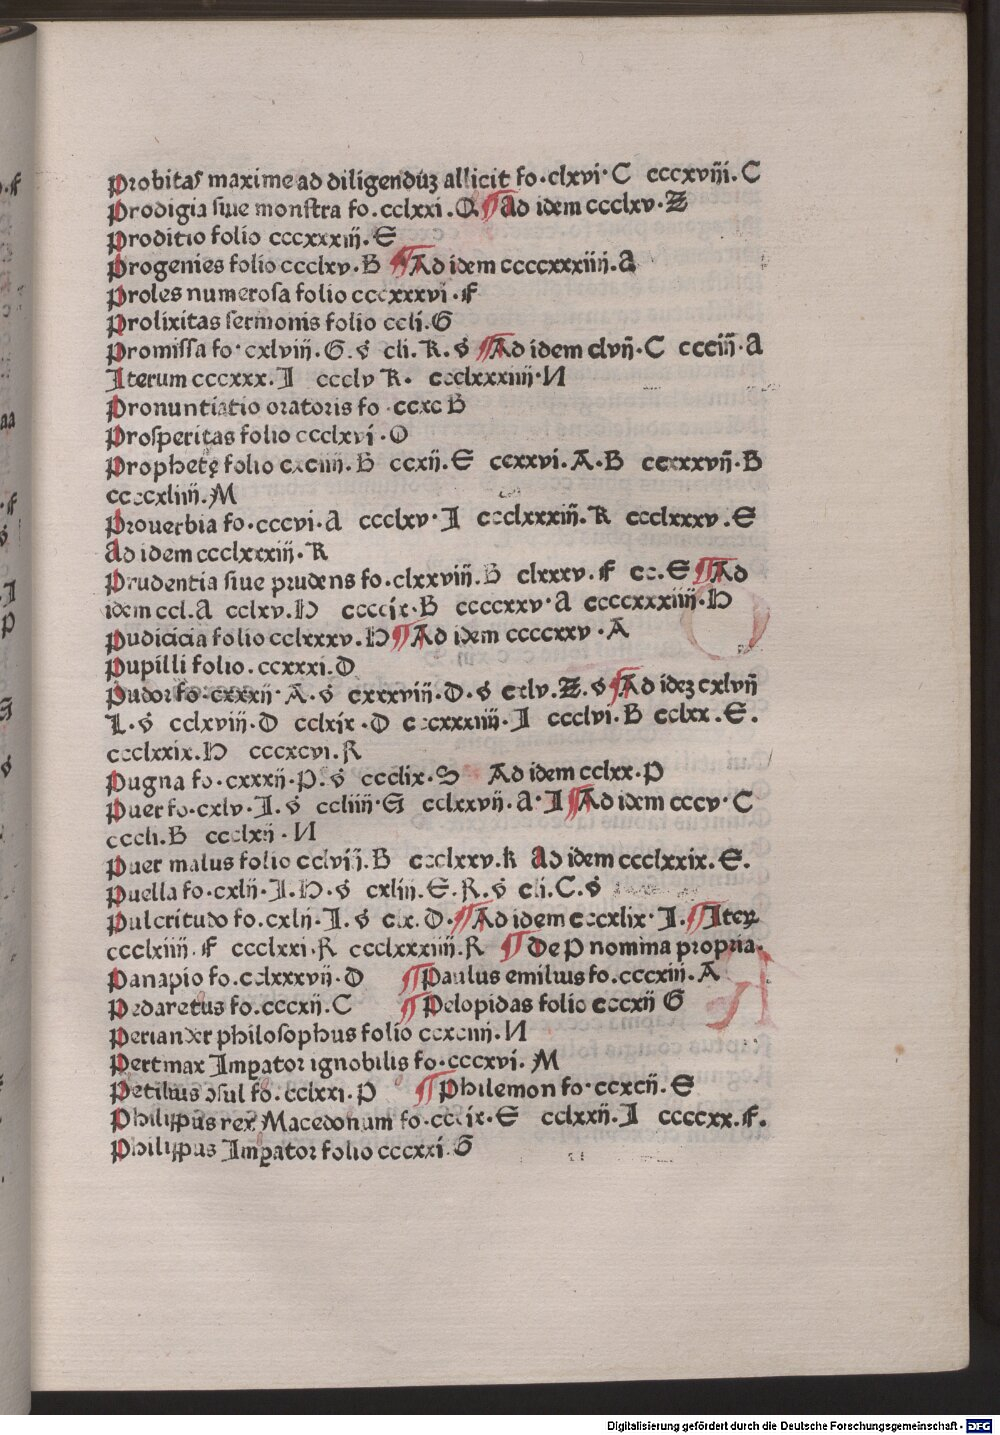 Probitas maxime ad diligendūꝫ allicit fo.clxvi.C cccxviij.C
Prodigia siue monstra fo.cclxxi.Q.¶Ad idem ccclxv.Z
Proditio folio cccxxxiij.E
Progenies folio ccclxv.B ¶Ad idem ccccxxxiiij.a
Proles numerosa folio cccxxxvi.f
Prolixitas sermonis folio ccli.G
Promissa fo.cxlviij.G.s cli.K.s ¶Ad idem clvij.C ccciij.A
Iterum cccxxx.I ccclv K. ccclxxxiiij.N
Pronuntiatio oratoris fo.ccxc B
Prosperitas folio ccclxvi.O
Prophetę folio cxciiij.B ccxij.E ccxxvi.A.B ccxxxvij.B
ccccxliiij.M
Prouerbia fo.cccvi.A ccclxv.I ccclxxxiij.K ccclxxxv.E
Ad idem ccclxxxiij.K
Prudentia siue prudens fo.clxxviij.B clxxxv.f cc.E ¶Ad
idem ccl.A cclxv.H ccccix.B ccccxxv.A ccccxxxiiij.H
Pudicicia folio cclxxxv.H ¶Ad idem ccccxxv.A
Pupilli folio.ccxxxi.D
Pudor fo.cxxxij.A.s cxxxviij.D.s cxlv.Z.s ¶Ad ideꝫ cxlvij
L.s cclxviij.D cclxix.D cccxxxiiij.I ccclvi.B cclxx.E.
ccclxxix.H cccxcvi.R
Pugna fo.cxxxij.P.s ccclix.S Ad idem cclxx.P
Puer fo.cxlv.I.s ccliiij.G cclxxvij.A.I ¶Ad idem cccv.C
cccli.B ccclxij.N
Puer malus folio cclvij.B ccclxxv.k Ad idem ccclxxix.E.
Puella fo.cxlij.I.H.s cxliij.E.R.s cli.C.s
Pulcritudo fo.cxlij.I.s clx.D.¶Ad idem cccxlix.I.¶Iteꝝ
ccclxiiij.f ccclxxi.R ccclxxxiiij.R ¶De P nomina propria.
Panapio fo.cclxxxvij.D ¶Paulus emilius fo.cccxiij.A
Pedaretus fo.cccxij.C ¶Pelopidas folio cccxij G
Periander philosophus folio ccxciiij.N
Pertinax Imꝑator ignobilis fo.cccxvi.M
Petilius ꝯsul fo.cclxxi.P ¶Philemon fo.ccxcij.E
Philippus rex Macedonum fo.cccix.E cclxxij.I ccccxx.f.
Philippus Imꝑator folio cccxxi.G
Digitalisierung gefördert durch die Deutsche Forschungsgemeinschaft - DFG